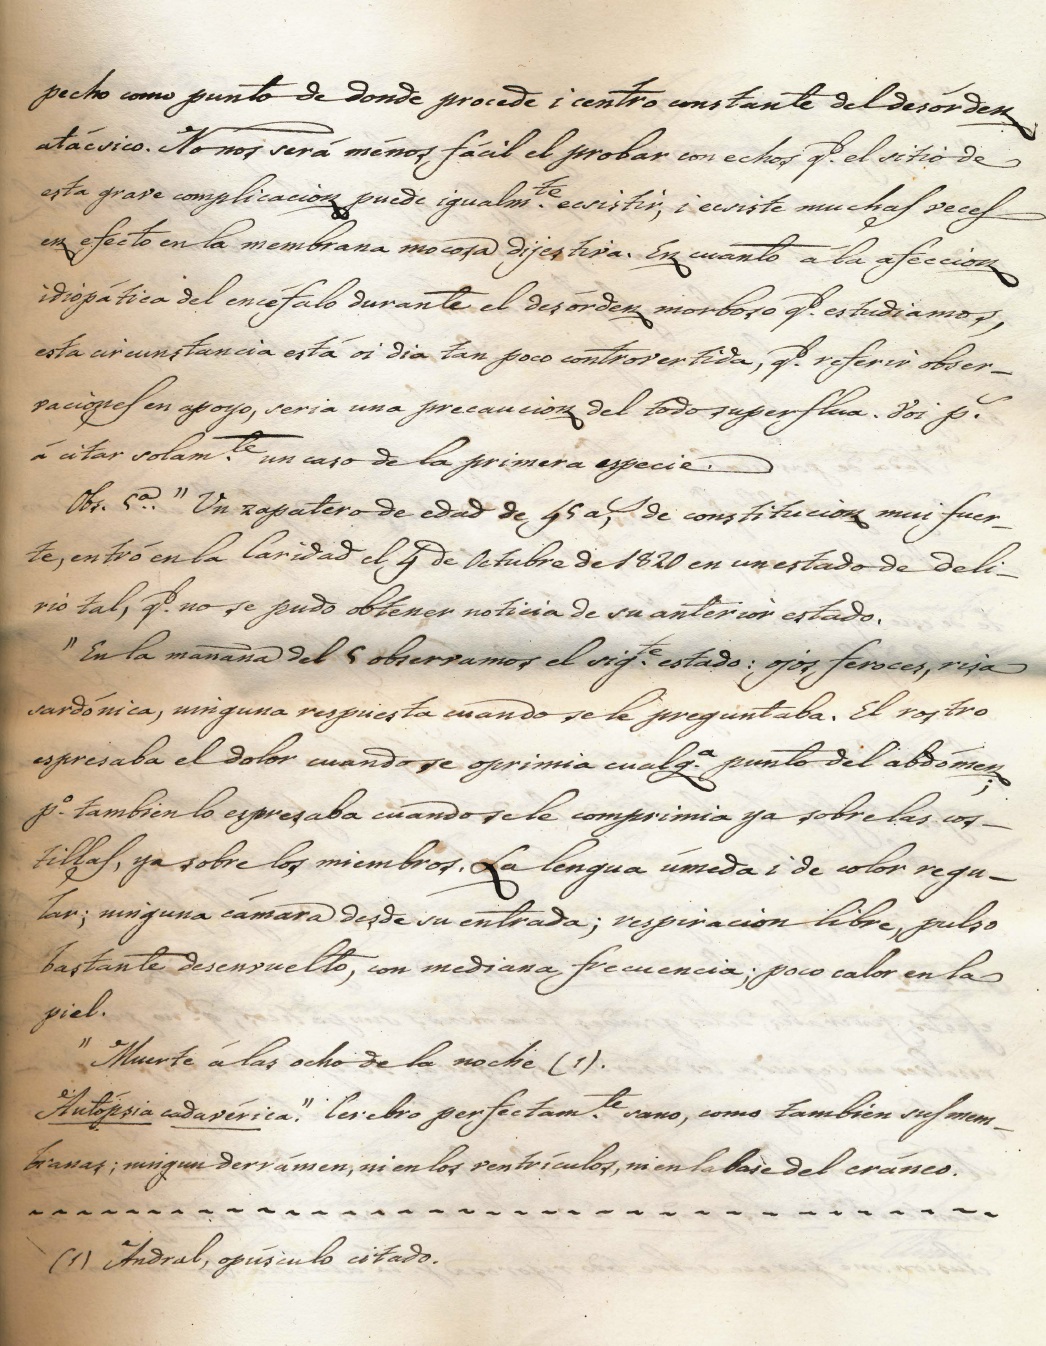 pecho como punto de donde procede i centro constante del desórden
atácsico. No nos será ménos fácil el probar con echos q.e el sitio de
esta grave complicacion puede igualm.te ecsistir, i ecsiste muchas veces
en efecto en la membrana mocosa dijestiva. En cuanto á la afeccion
idiopática del encéfalo durante el desórden morboso q.e estudiamos,
esta circunstancia está oi dia tan poco controvertida, q.e referir obser-
vaciones en apoyo, seria una precaucion del todo superflua. Voi p.s
á citar solam.te un caso de la primera especie.
Obs. 5.a " Un zapatero de edad de 45 a.s de constitucion mui fuer-
te, entró en la Caridad el 4 de Octubre de 1820 en un estado de deli-
rio tal, q.e no se pudo obtener noticia de su anterior estado.
" En la mañana del 5 observamos el sig.te estado: ojos feroces, risa
sardónica, ninguna respuesta cuando se le preguntaba. El rostro
espresaba el dolor cuando se oprimia cualq.a punto del abdómen;
p.o tambien lo espresaba cuando se le comprimia ya sobre las cos-
tillas, ya sobre los miembros. La lengua úmeda i de color regu-
lar; ninguna cámara desde su entrada; respiracion libre, pulso
bastante desenvuelto, con mediana frecuencia; poco calor en la
piel.
" Muerte á las ocho de la noche (1).
Autópsia cadavérica." Cerebro perfectam.te sano, como tambien sus mem-
branas; ningun derrámen, ni en los ventrículos, ni en la base del cráneo.
(1) Andral, opúsculo citado.